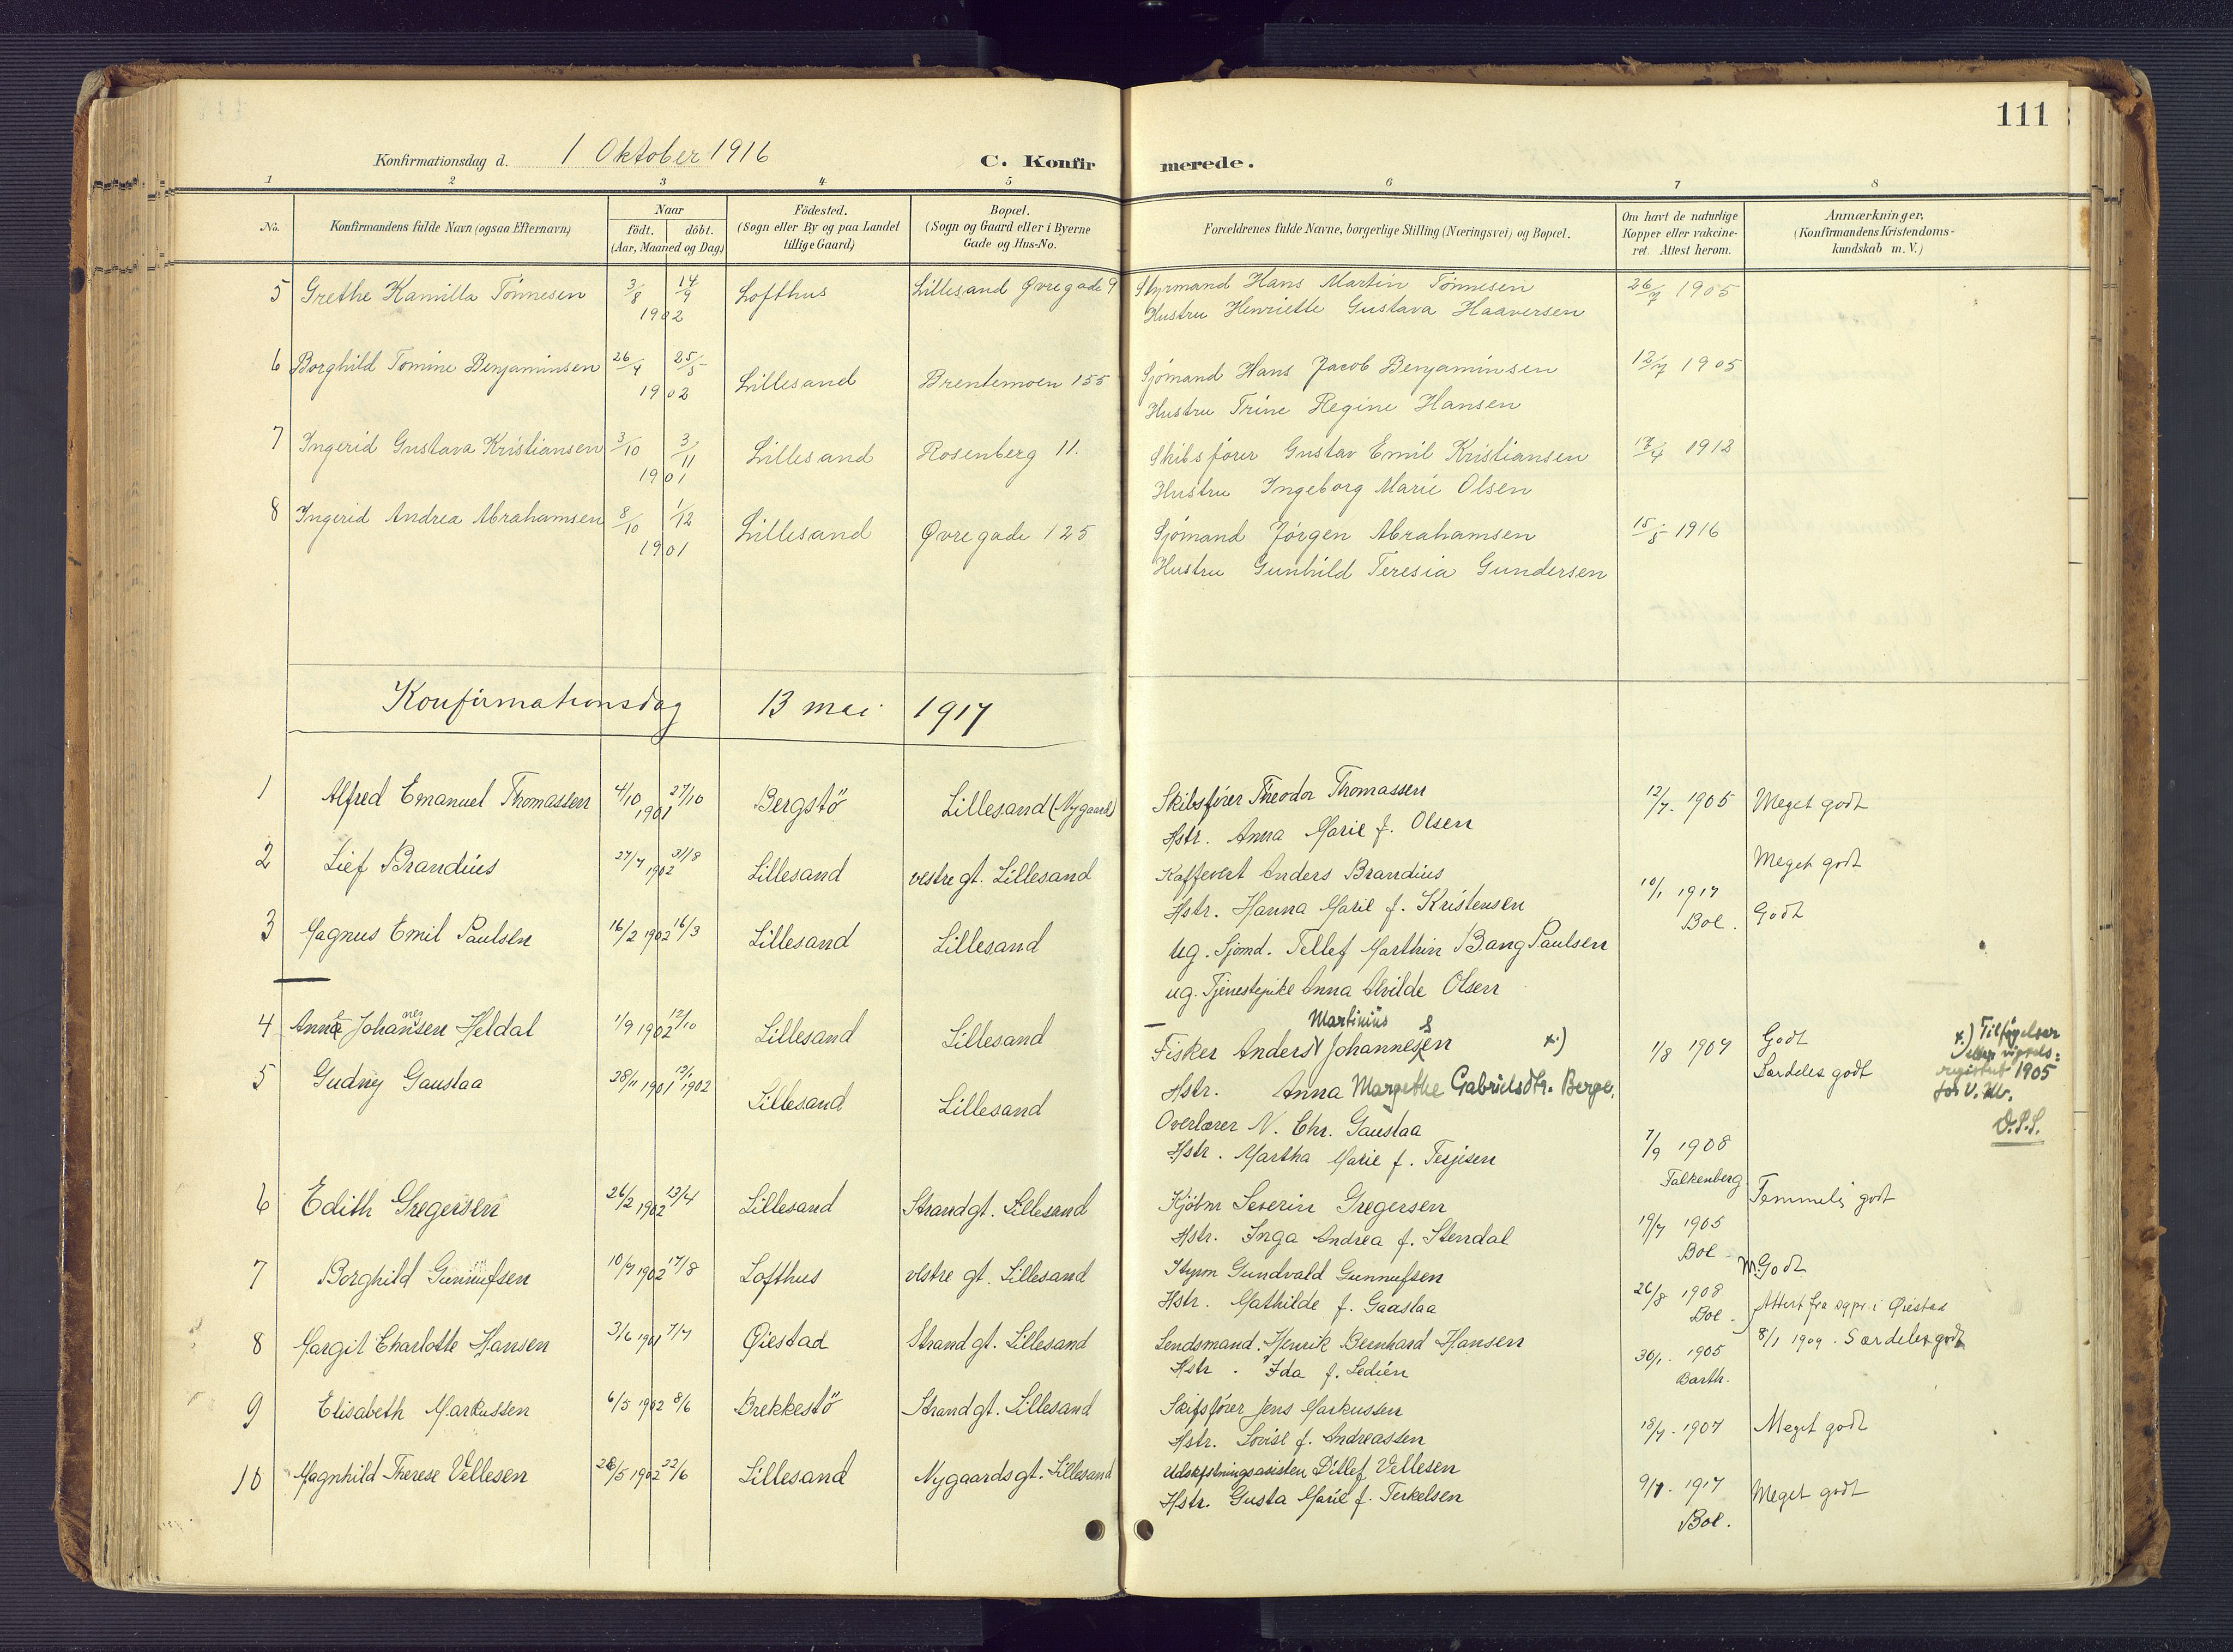 111
Konfirmationsdag d. 1 Oktober 1916
C. Konfirmerede.
1 2 3 4 5 6 7 8
No.
Konfirmandens fulde Navn (ogsaa Efternavn)
Naar
födt. döbt.
(Aar, Maaned og Dag)
Födested.
(Sogn eller By og paa Landet
tillige Gaard)
Bopæl.
(Sogn og Gaard eller i Byerne
Gade og Hus-No.
Forældrenes fulde Navne, borgerlige Stilling (Næringsvei) og Bopæl.
Om havt de naturlige
Kopper eller vakcine-
ret. Attest herom.
Anmærkninger.
(Konfirmandens Kristendoms-
kundskab m. V.)
5 Grethe Kamilla Tönnesen 3/8 14/9 1902 Lofthus Lillesand Øvregade 9 Styrmand Hans Martin Tönnesen 26/7 1905
Hustru Henriette Gustava Haaversen
6 Borghild Tomine Benjaminsen 26/4 25/5 1902 Lillesand Brentemoen 155 Sjömand Hans Jacob Benjaminsen 12/7 1905
Hustru Trine Regine Hansen
7 Ingerid Gustava Kristiansen 3/10 3/11 1901 Lillesand Rosenberg 11. Skibsförer Gustav Emil Kristiansen 17/4 1912
Hustru Ingeborg Marie Olsen
8 Ingerid Andrea Abrahamsen 8/10 1/12 1901 Lillesand Øvregade 125 Sjömand Jörgen Abrahamsen 15/5 1916
Hustru Gunhild Teresia Gundersen
Konfirmationsdag 13 mai 1917
1 Alfred Emanuel Thomassen 4/10 27/10 1901 Bergstö Lillesand (Nygaard) Skibsfører Theodor Thomassen 12/7. 1905 Meget godt
Hstr. Anna Marie f. Olsen
2 Lief Brandius 27/7 1902 31/8 Lillesand vestre gt. Lillesand Kaffevert Anders Brandius Meget godt
Hstr. Hanna Marie f. Kristensen 10/1 1917
Boe.
3 Magnus Emil Paulsen 16/2 1902 16/3 Lillesand Lillesand ug. Sjömd. Tellef Marthin Bang Paulsen Godt
ug. Tjenestepike Anna Alvilde Olsen
4 Anna Johannessen Heldal 1/9 1902 12/10 Lillesand Lillesand Fisker Anders Martinius Johannesen x) 1/8 1907 Godt
Hstr. Anna Margethe Gabrielsdtr. Berge.
x.) Tilføyelser
etter vigsels=
registret 1905
for V. Mr.
O.S.S.
5 Gudny Gaustaa 28/11 1901 12/1 1902 Lillesand Lillesand Overlærer N. Chr. Gaustaa Særdeles godt
Hstr. Martha Marie f. Terjesen 7/9 1908
Falkenberg
6 Edith Gregersen 26/2 1902 13/4 Lillesand Strandgt. Lillesand Kjöbm Severin Gregersen Temmelig godt
Hstr. Inga Andrea f. Stendal 19/7 1905
Boe
7 Borghild Gunnufsen 10/7 1902 17/8 Lofthus vestre gt. Lillesand Styrm Gundvald Gunnufsen M. Godt
Hstr. Mathilde f. Gaastaa 26/8 1908
Boe.
8 Margit Charlotte Hansen 3/6 1901 7/7 Øiestad Strandgt. Lillesand Lendsmand. Henrik Bernhard Hansen Attest fra sgpr. i Øiestad
Hstr. Ida f. Ledien 30/1. 1905 8/1 1909. Særdeles godt
Barth.
9 Elisabeth Markussen 6/5 1902 8/6 Brekkestö Strandgt. Lillesand Skibsfører Jens Markussen
Hstr. Lovise f. Andreassen 18/7. 1907 Meget godt
10 Magnhild Therese Vellesen 26/5 1902 22/6 Lillesand Nygaardsgt. Lillesand Udskiftningsasisten Ditlef Vellesen
Hstr. Gusta Marie f. Terkelsen 9/1. 1917 Meget godt
Boe.